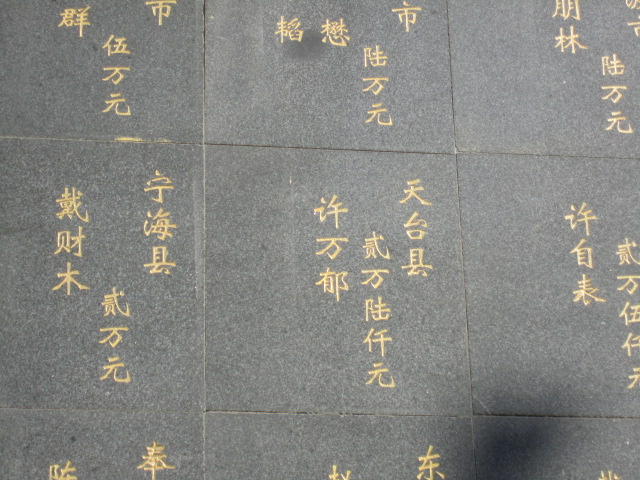 市
群
伍万元
市
懋
韬
陆万元
朋林
陆万元
宁海县
戴财木
贰万元
天台县
许万郁
贰万陆仟元
许自表
贰万伍仟元
奉
陈
东
赵